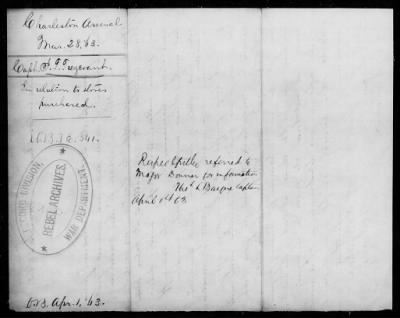 Charleston Arsenal
Mar. 28, 63.
Capt.
In relation to stores
purchased.
SECOND DIVISION,
REBEL ARCHIVES,
WAR DEPARTMENT.
Respectfully referred to
Major Bonner for information
Thos L Bayne Captain
April 1st 63
Apr. 1, 63.